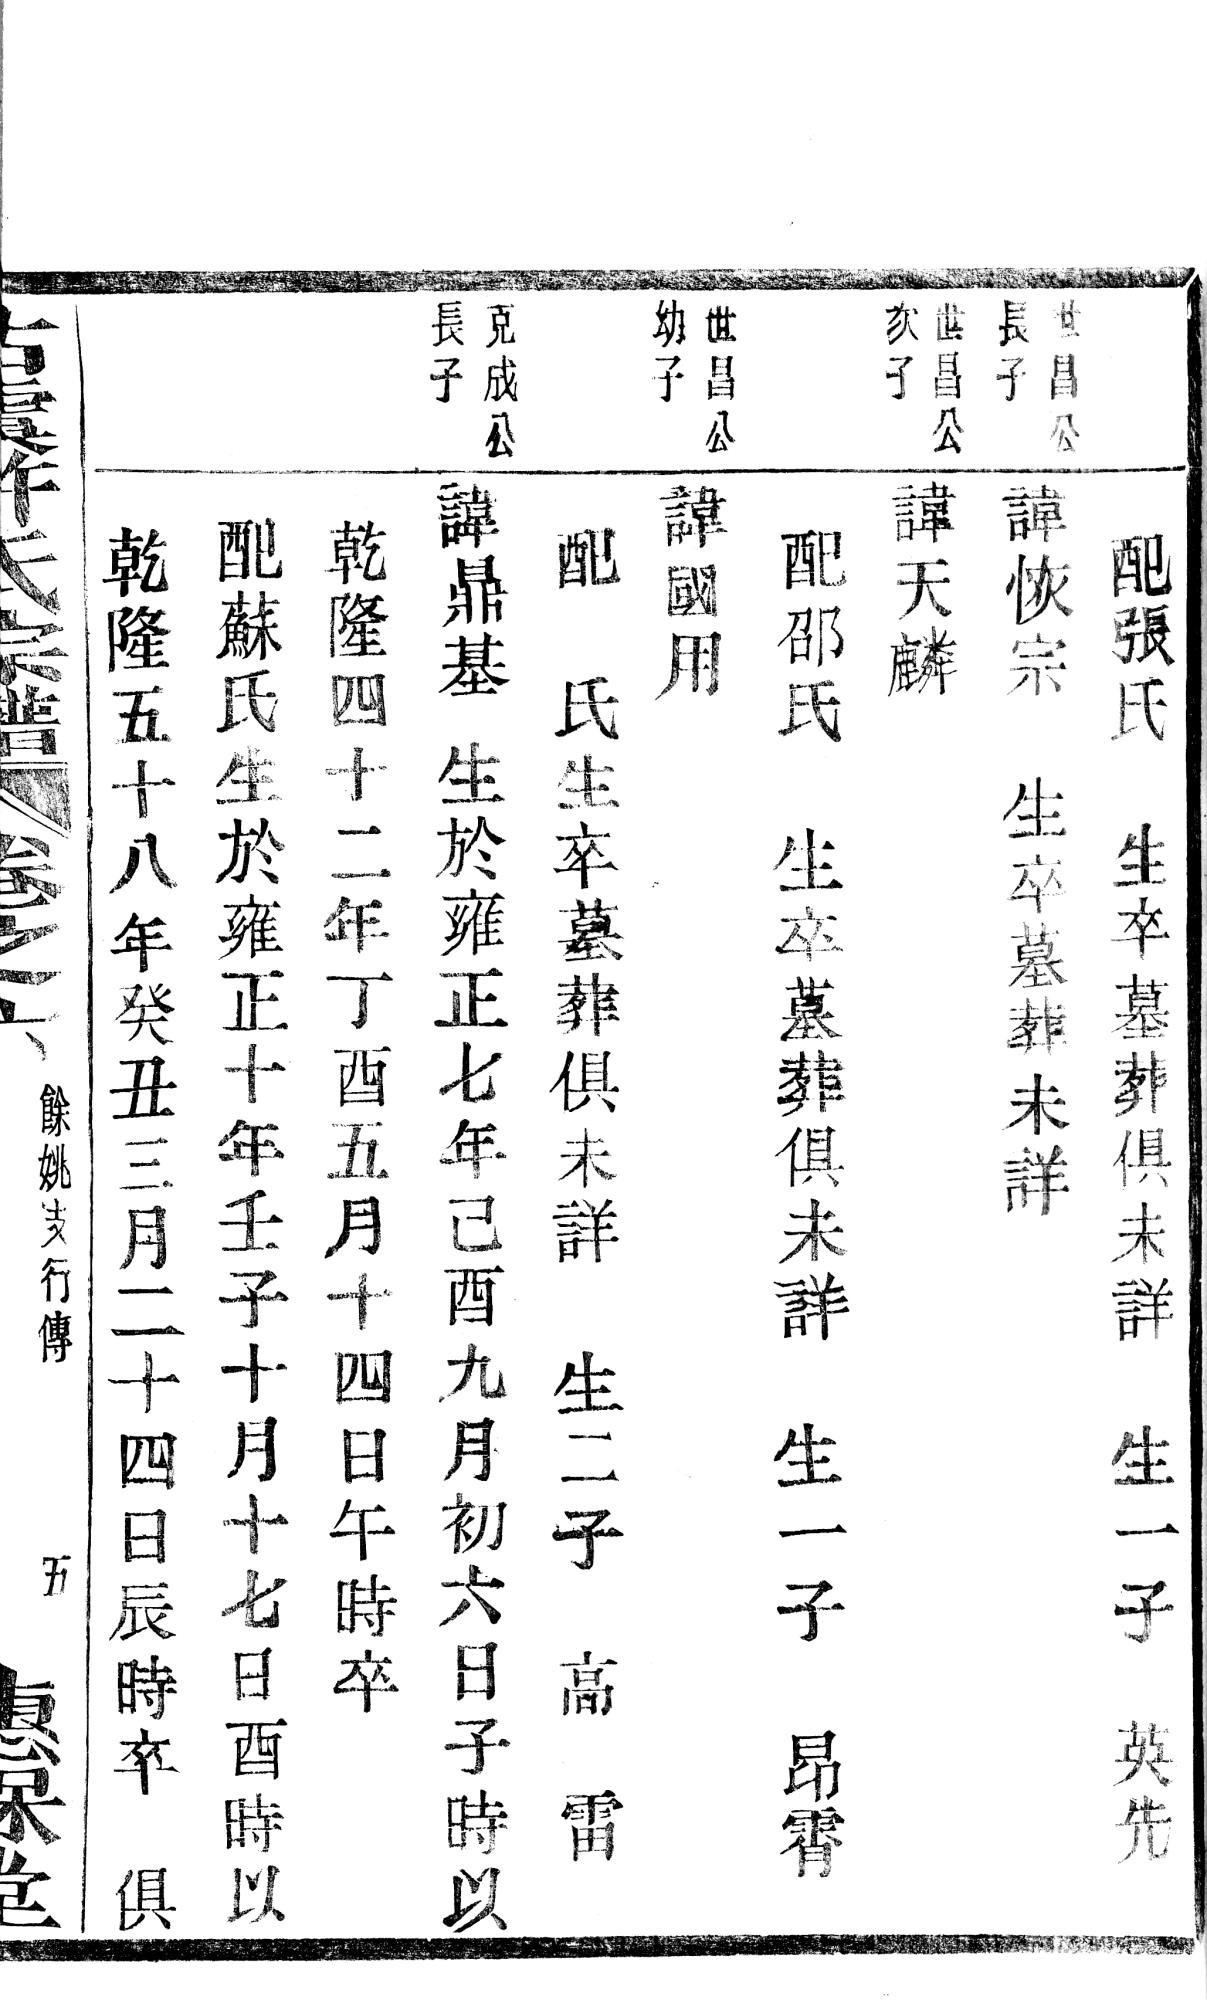 配張氏　生卒墓葬俱未詳　生一子　英先
世昌公
長子
諱恢宗　生卒墓葬未詳
世昌公
次子
諱天麟
配邵氏　生卒墓葬俱未詳　生一子　昂霄
世昌公
幼子
諱國用
配　氏生卒墓葬俱未詳　生二子　高　雷
克成公
長子
諱鼎基　生於雍正七年己酉九月初六日子時以
乾隆四十二年丁酉五月十四日午時卒
配蘇氏生於雍正十年壬子十月十七日酉時以
乾隆五十八年癸丑三月二十四日辰時卒　俱
古虞許氏宗譜　卷之六　餘姚支行傳　五　惠保堂